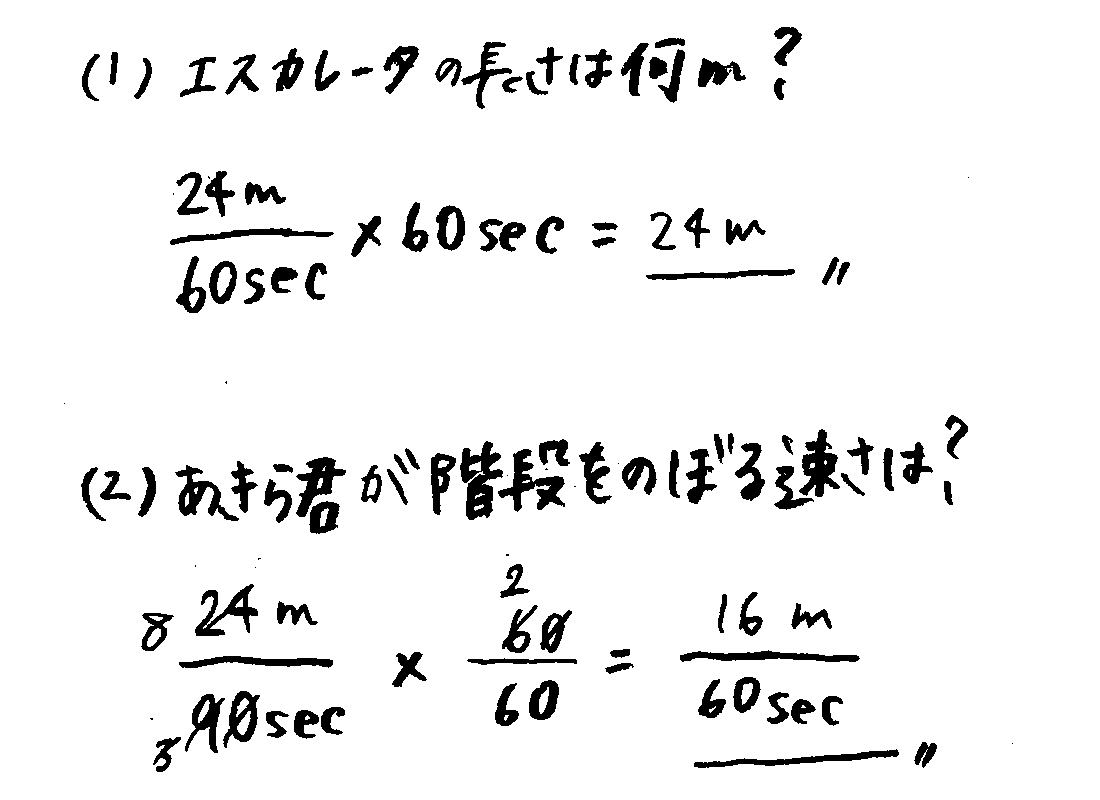 (1) エスカレータの長さは何m?
24m/60sec × 60sec = 24m 〃
(2) あきら君が階段をのぼる速さは?
8 24m/3 90sec × 2 60/60 = 16m/60sec 〃